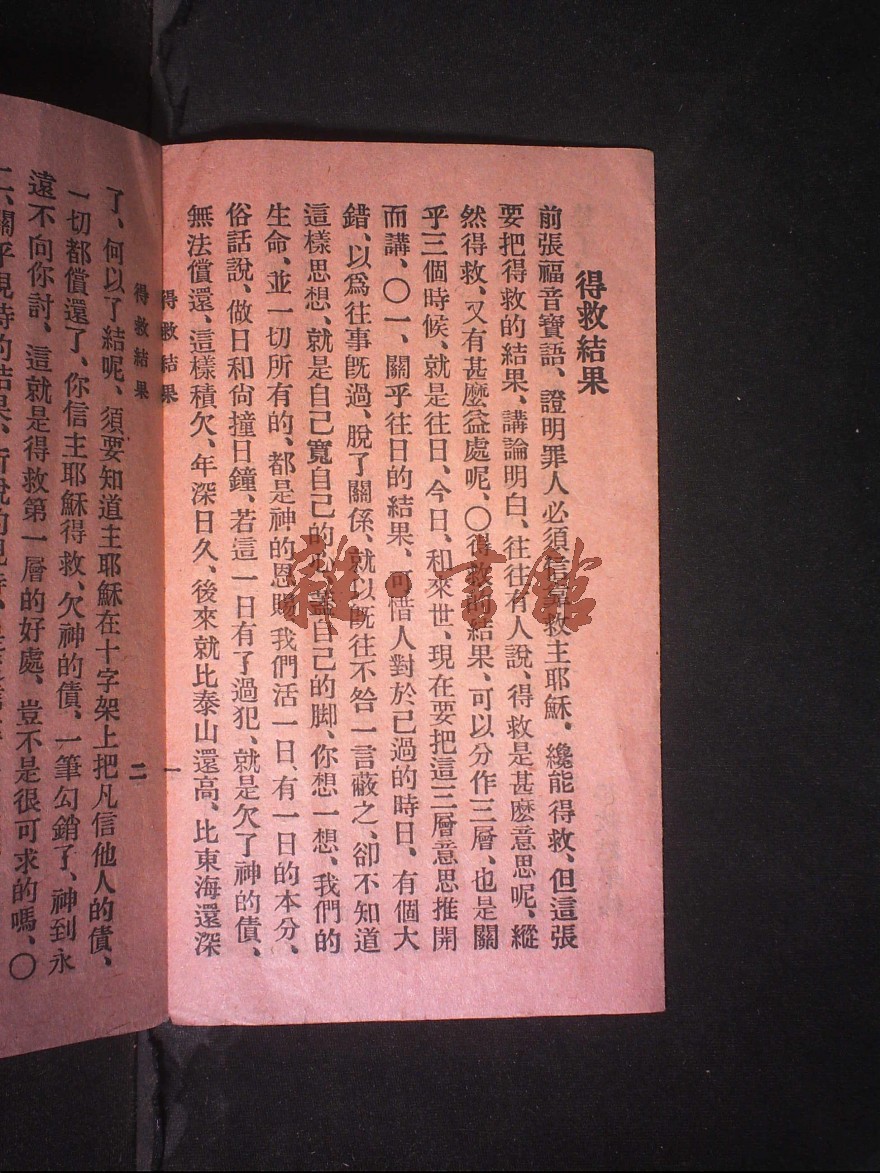 得救結果
前張福音寶語、證明罪人必須信靠救主耶穌、纔能得救、但這張
要把得救的結果、講論明白、往往有人說、得救是甚麽意思呢、縱
然得救、又有甚麽益處呢、〇得救的結果、可以分作三層、也是關
乎三個時候、就是往日、今日、和來世、現在要把這三層意思推開
而講、〇一、關乎往日的結果、可惜人對於已過的時日、有個大
錯、以爲往事旣過、脫了關係、就以旣往不咎一言蔽之、卻不知道
這樣思想、就是自己寬自己的心、蓋自己的脚、你想一想、我們的
生命、並一切所有的、都是神的恩賜、我們活一日、有一日的本分、
俗話說、做日和尙撞日鐘、若這一日有了過犯、就是欠了神的債、
無法償還、這樣積欠、年深日久、後來就比泰山還高、比東海還深
得救結果 一
得救結果 二
了、何以了結呢、須要知道主耶穌在十字架上把凡信他人的債、
一切都償還了、你信主耶穌得救、欠神的債、一筆勾銷了、神到永
遠不向你討、這就是得救第一層的好處、豈不是很可求的嗎、〇
二、關乎現時的結果、所說的現時、
雜·書館